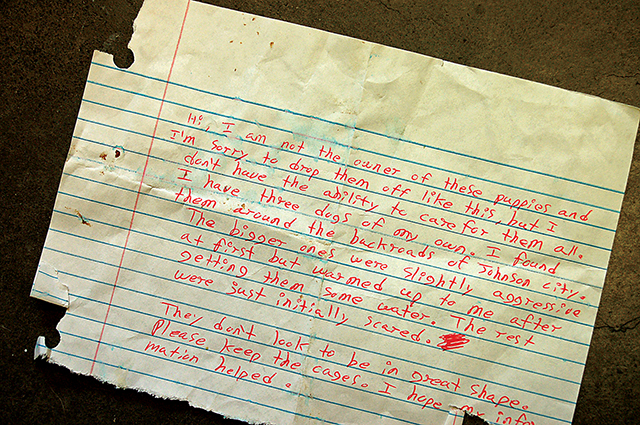 Hi, I am not the owner of these puppies and
I'm sorry to drop them off like this, but I
don't have the ability to care for them all.
I have three dogs of my own. I found
them around the backroads of Johnson city.
The bigger ones were slightly aggressive
at first but warmed up to me after
getting them some water. The rest
were just initially scared.
They don't look to be in great shape.
Please keep the cages. I hope my infor
mation helped.